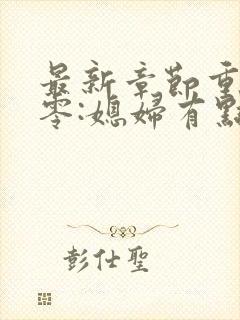 最新章節重
零:媳婦有點
彭仕聖